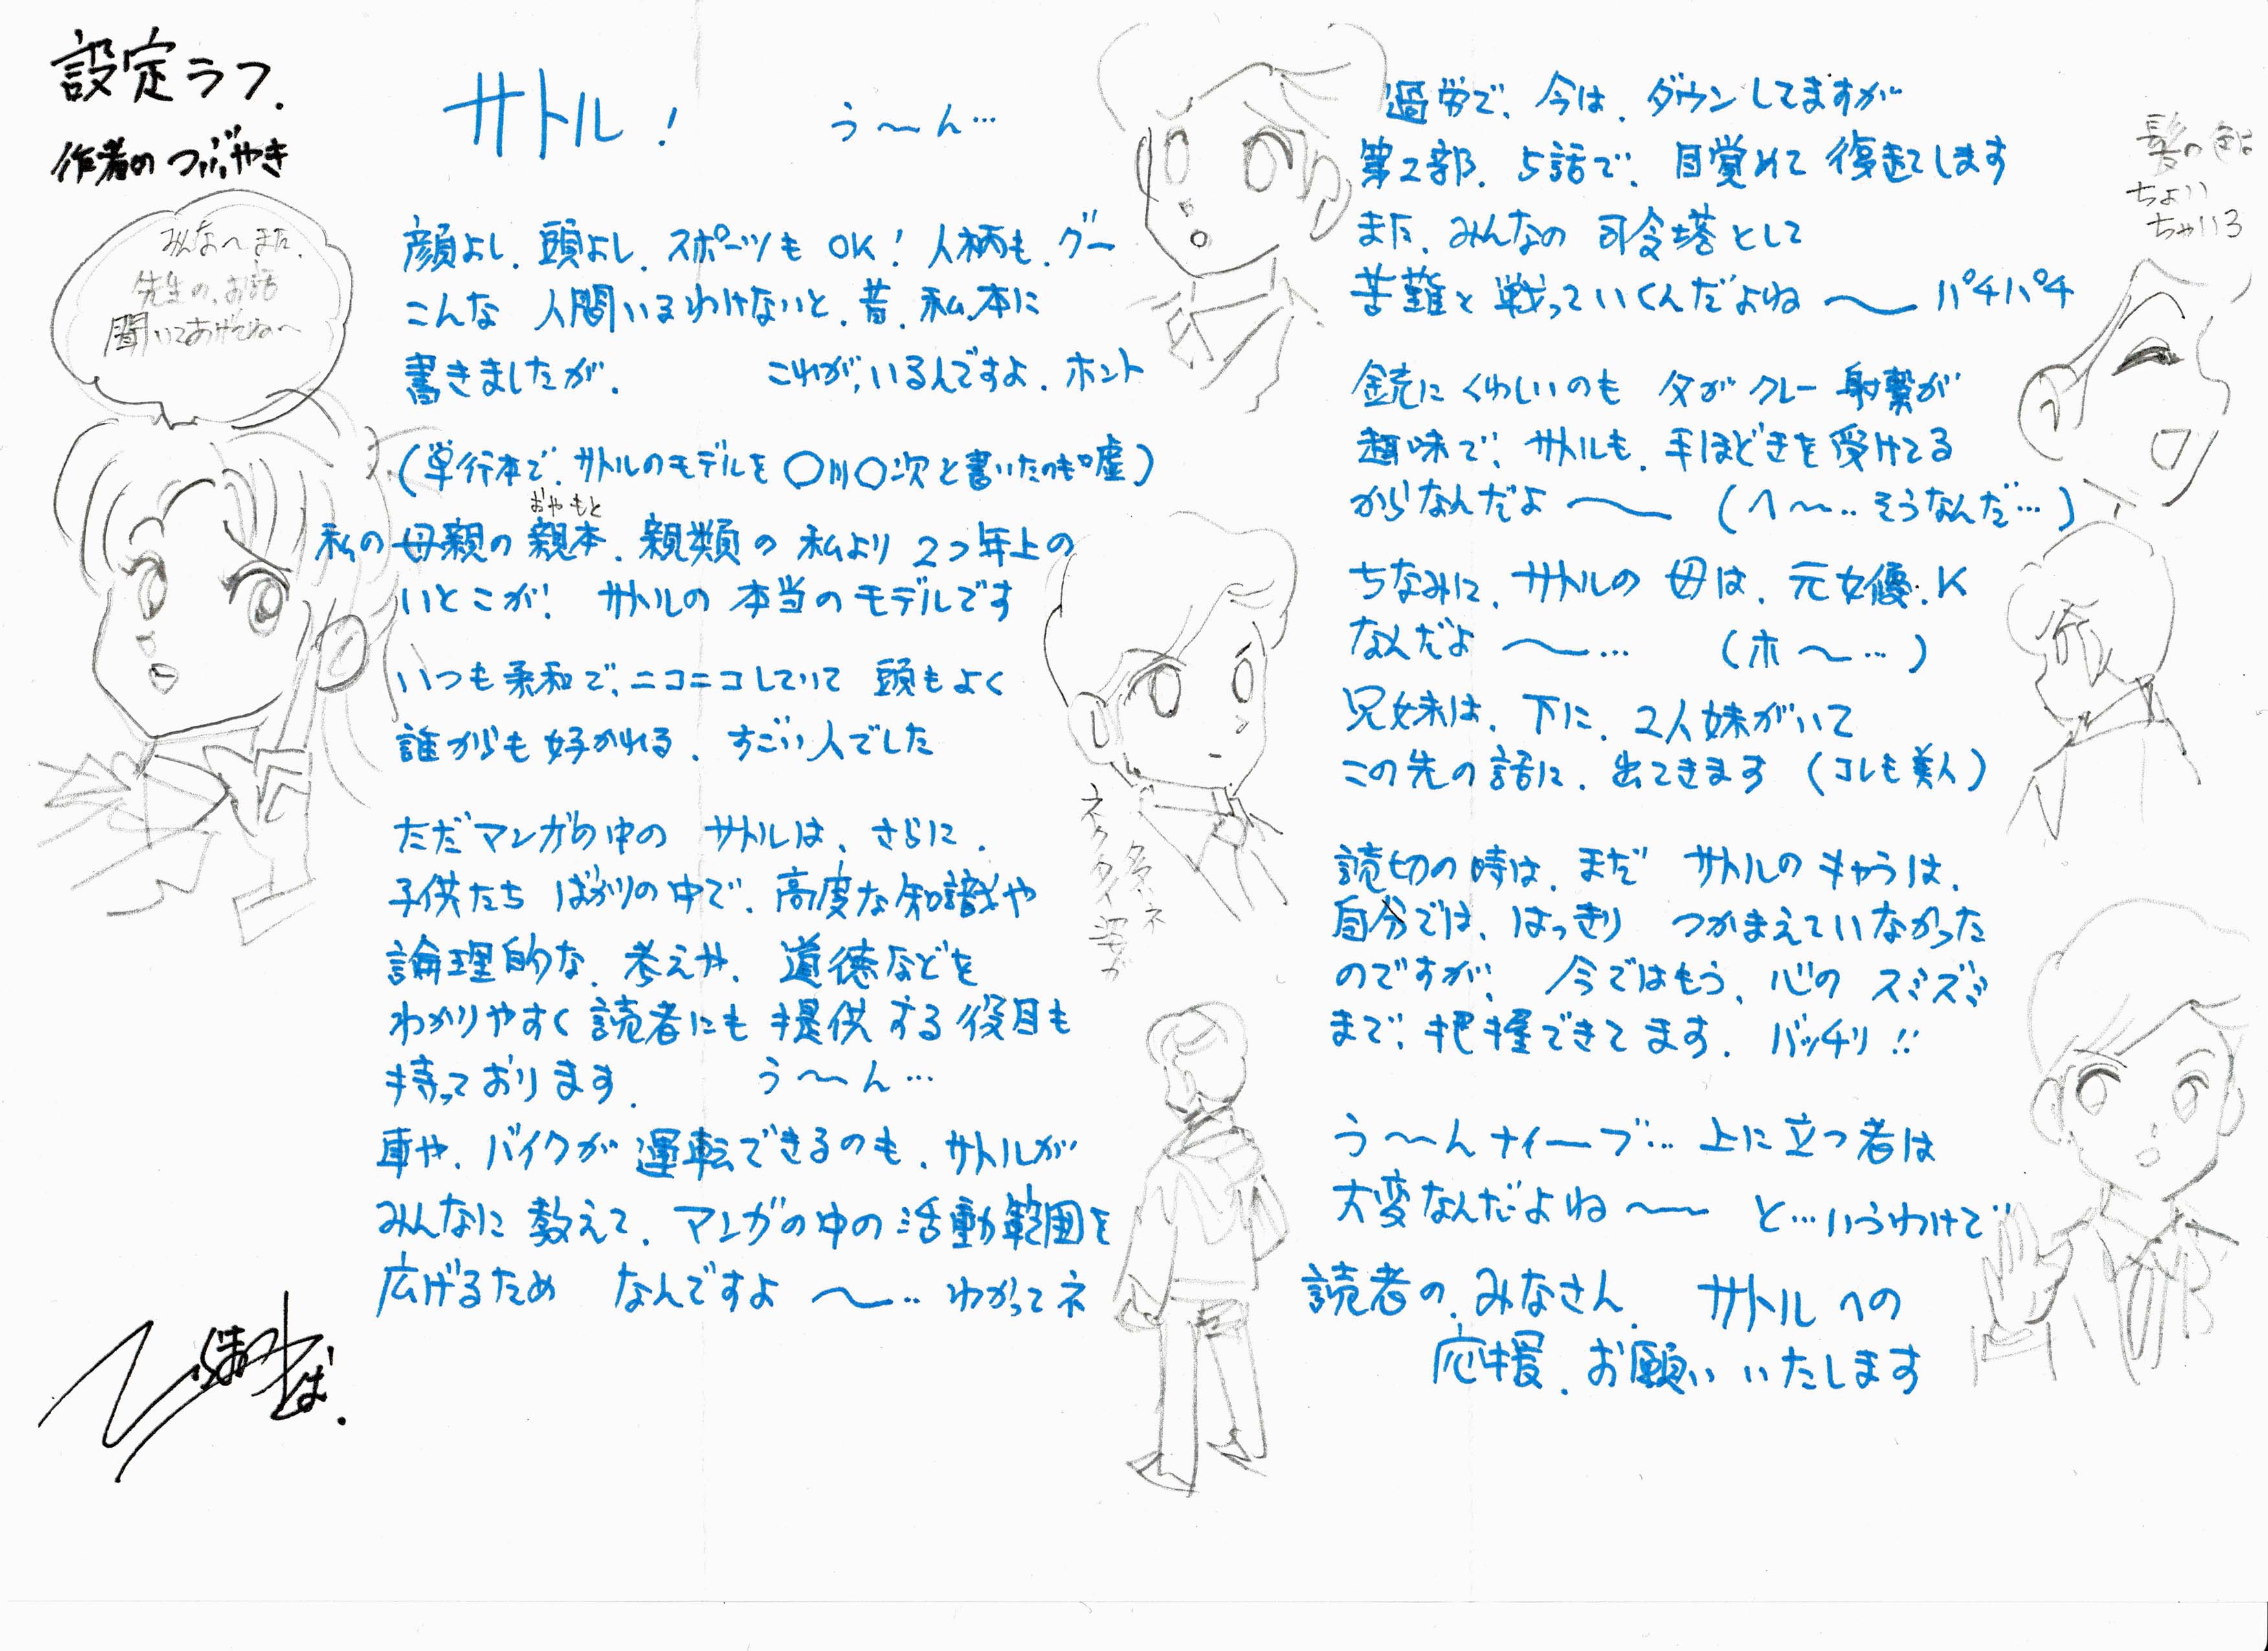 設定ラフ.
作者のつぶやき
みんな〜また、
先生の、お話
聞いてあげてね〜
サトル! う〜ん…
顔よし、頭よし、スポーツもOK!人柄も、グー
こんな 人間いるわけないと、昔、私、本に
書きましたが、 これが、いるんですよ、ホント
(単行本で、サトルのモデルを〇川〇次と書いたのも嘘)
おやもと
私の母親の親本、親類の私より2つ年上の
いとこが! サトルの本当のモデルです
いつも柔和で、ニコニコしていて 頭もよく
誰からも好かれる、すごい人でした
ただマンガの中の サトルは、さらに、
子供たち ばかりの中で、高度な知識や
論理的な、考えや、道徳などを
わかりやすく読者にも提供する役目も
持っております. う〜ん…
車や、バイクが運転できるのも、サトルが
みんなに教えて、マンガの中の活動範囲を
広げるため なんですよ〜… わかってネ
ネクタイ姿が
多いネ
過労で、今は、ダウンしてますが
第2部、5話で、目覚めて復起てします
また、みんなの司令塔として
苦難と戦っていくんだよね〜 パチパチ
銃にくわしいのも 父がクレー射撃が
趣味で、サトルも、手ほどきを受けてる
からなんだよ〜 (へ〜…そうなんだ…)
ちなみに、サトルの母は、元女優、K
なんだよ〜… (ホ〜…)
兄妹は、下に、2人妹がいて
この先の話に、出てきます (コレも美人)
読切の時は、まだ サトルのキャラは、
自分では、はっきり つかまえていなかった
のですが、今ではもう、心のスミズミ
まで、把握できてます. バッチリ!!
う〜んナイーブ… 上に立つ者は
大変なんだよね〜 と…いうわけで…
読者の、みなさん、サトルへの
応援、お願いいたします
髪の色は
ちょい
ちゃいろ